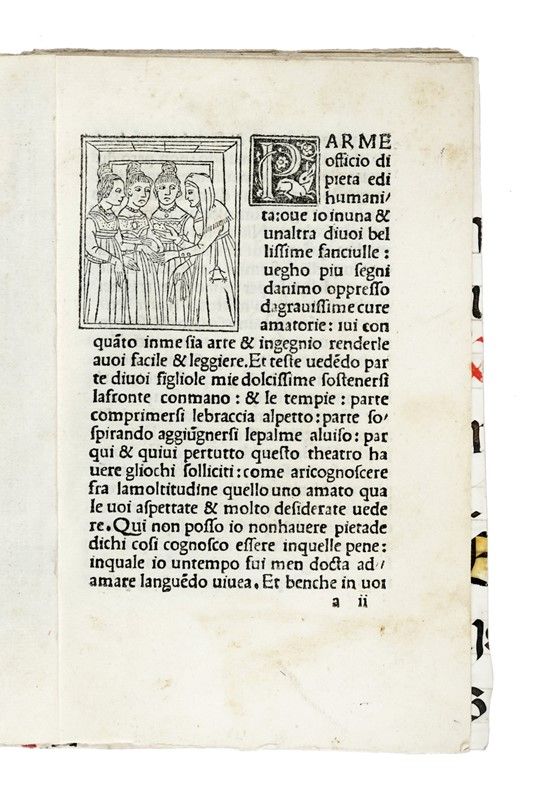 PARME
officio di
pieta edi
humani/
ta:oue io inuna &
unaltra diuoi bel
lissime fanciulle :
uegho piu segni
danimo oppresso
dagrauissime cure
amatorie: iui con
quãto inme sia arte & ingegnio renderle
auoi facile & leggiere.Et teste uedẽdo par
te diuoi figliole mie dolcissime sostenersi
lafronte conmano : & le tempie : parte
comprimersi lebraccia alpetto: parte so/
spirando aggiũgnersi lepalme aluiso: par
qui & quiui pertutto questo theatro ha
uere gliochi solliciti: come aricognoscere
fra lamoltitudine quello uno amato qua
le uoi aspettate & molto desiderate uede
re. Qui non posso io nonhauere pietade
dichi cosi cognosco essere inquelle pene:
inquale io untempo fui men docta ad/
amare languẽdo uiuea. Et benche in uoi
a ii